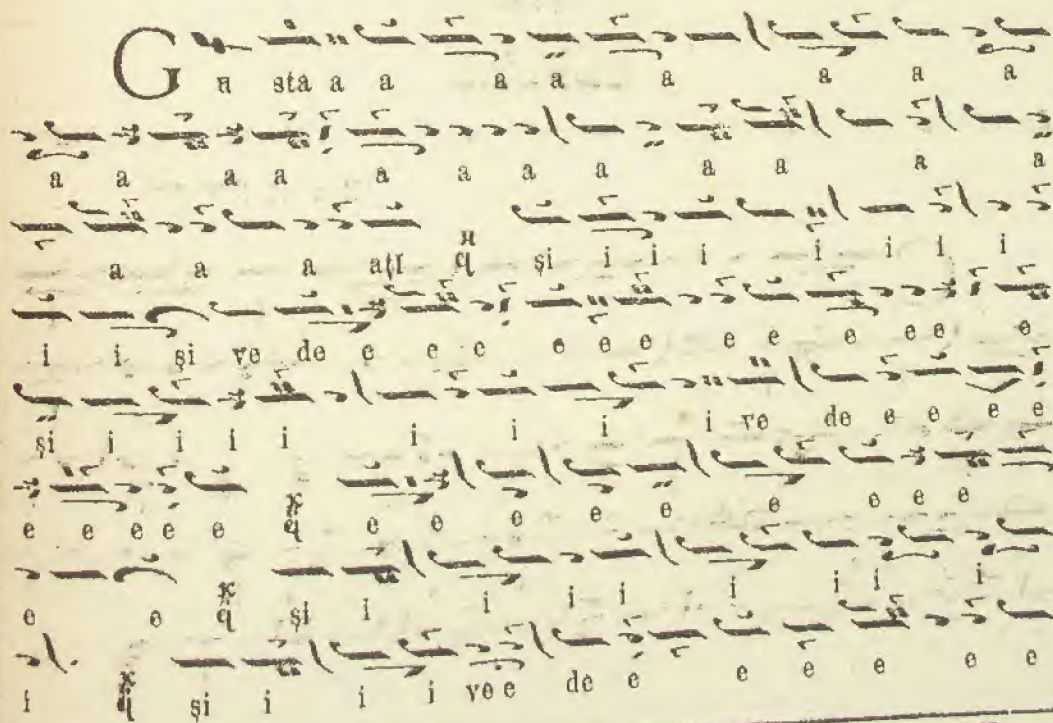 G a sta a a a a a a a a
a a a a a a a a a a a a
a a a ațĭ și i i i i i i i i
i i și ve de e e e e e e e e e e e e
și i i i i i i i i ve de e e e e
e e e e e e e e e e e e e e
e e și i i i i i i i i
i și i i i ve e de e e e e e e